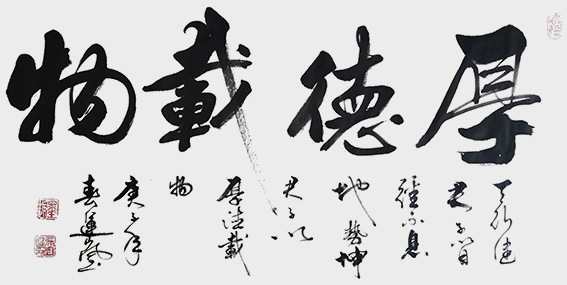 厚德載物
天行健
君子以自
强不息
地勢坤
君子以
厚德載
物
庚子年
春